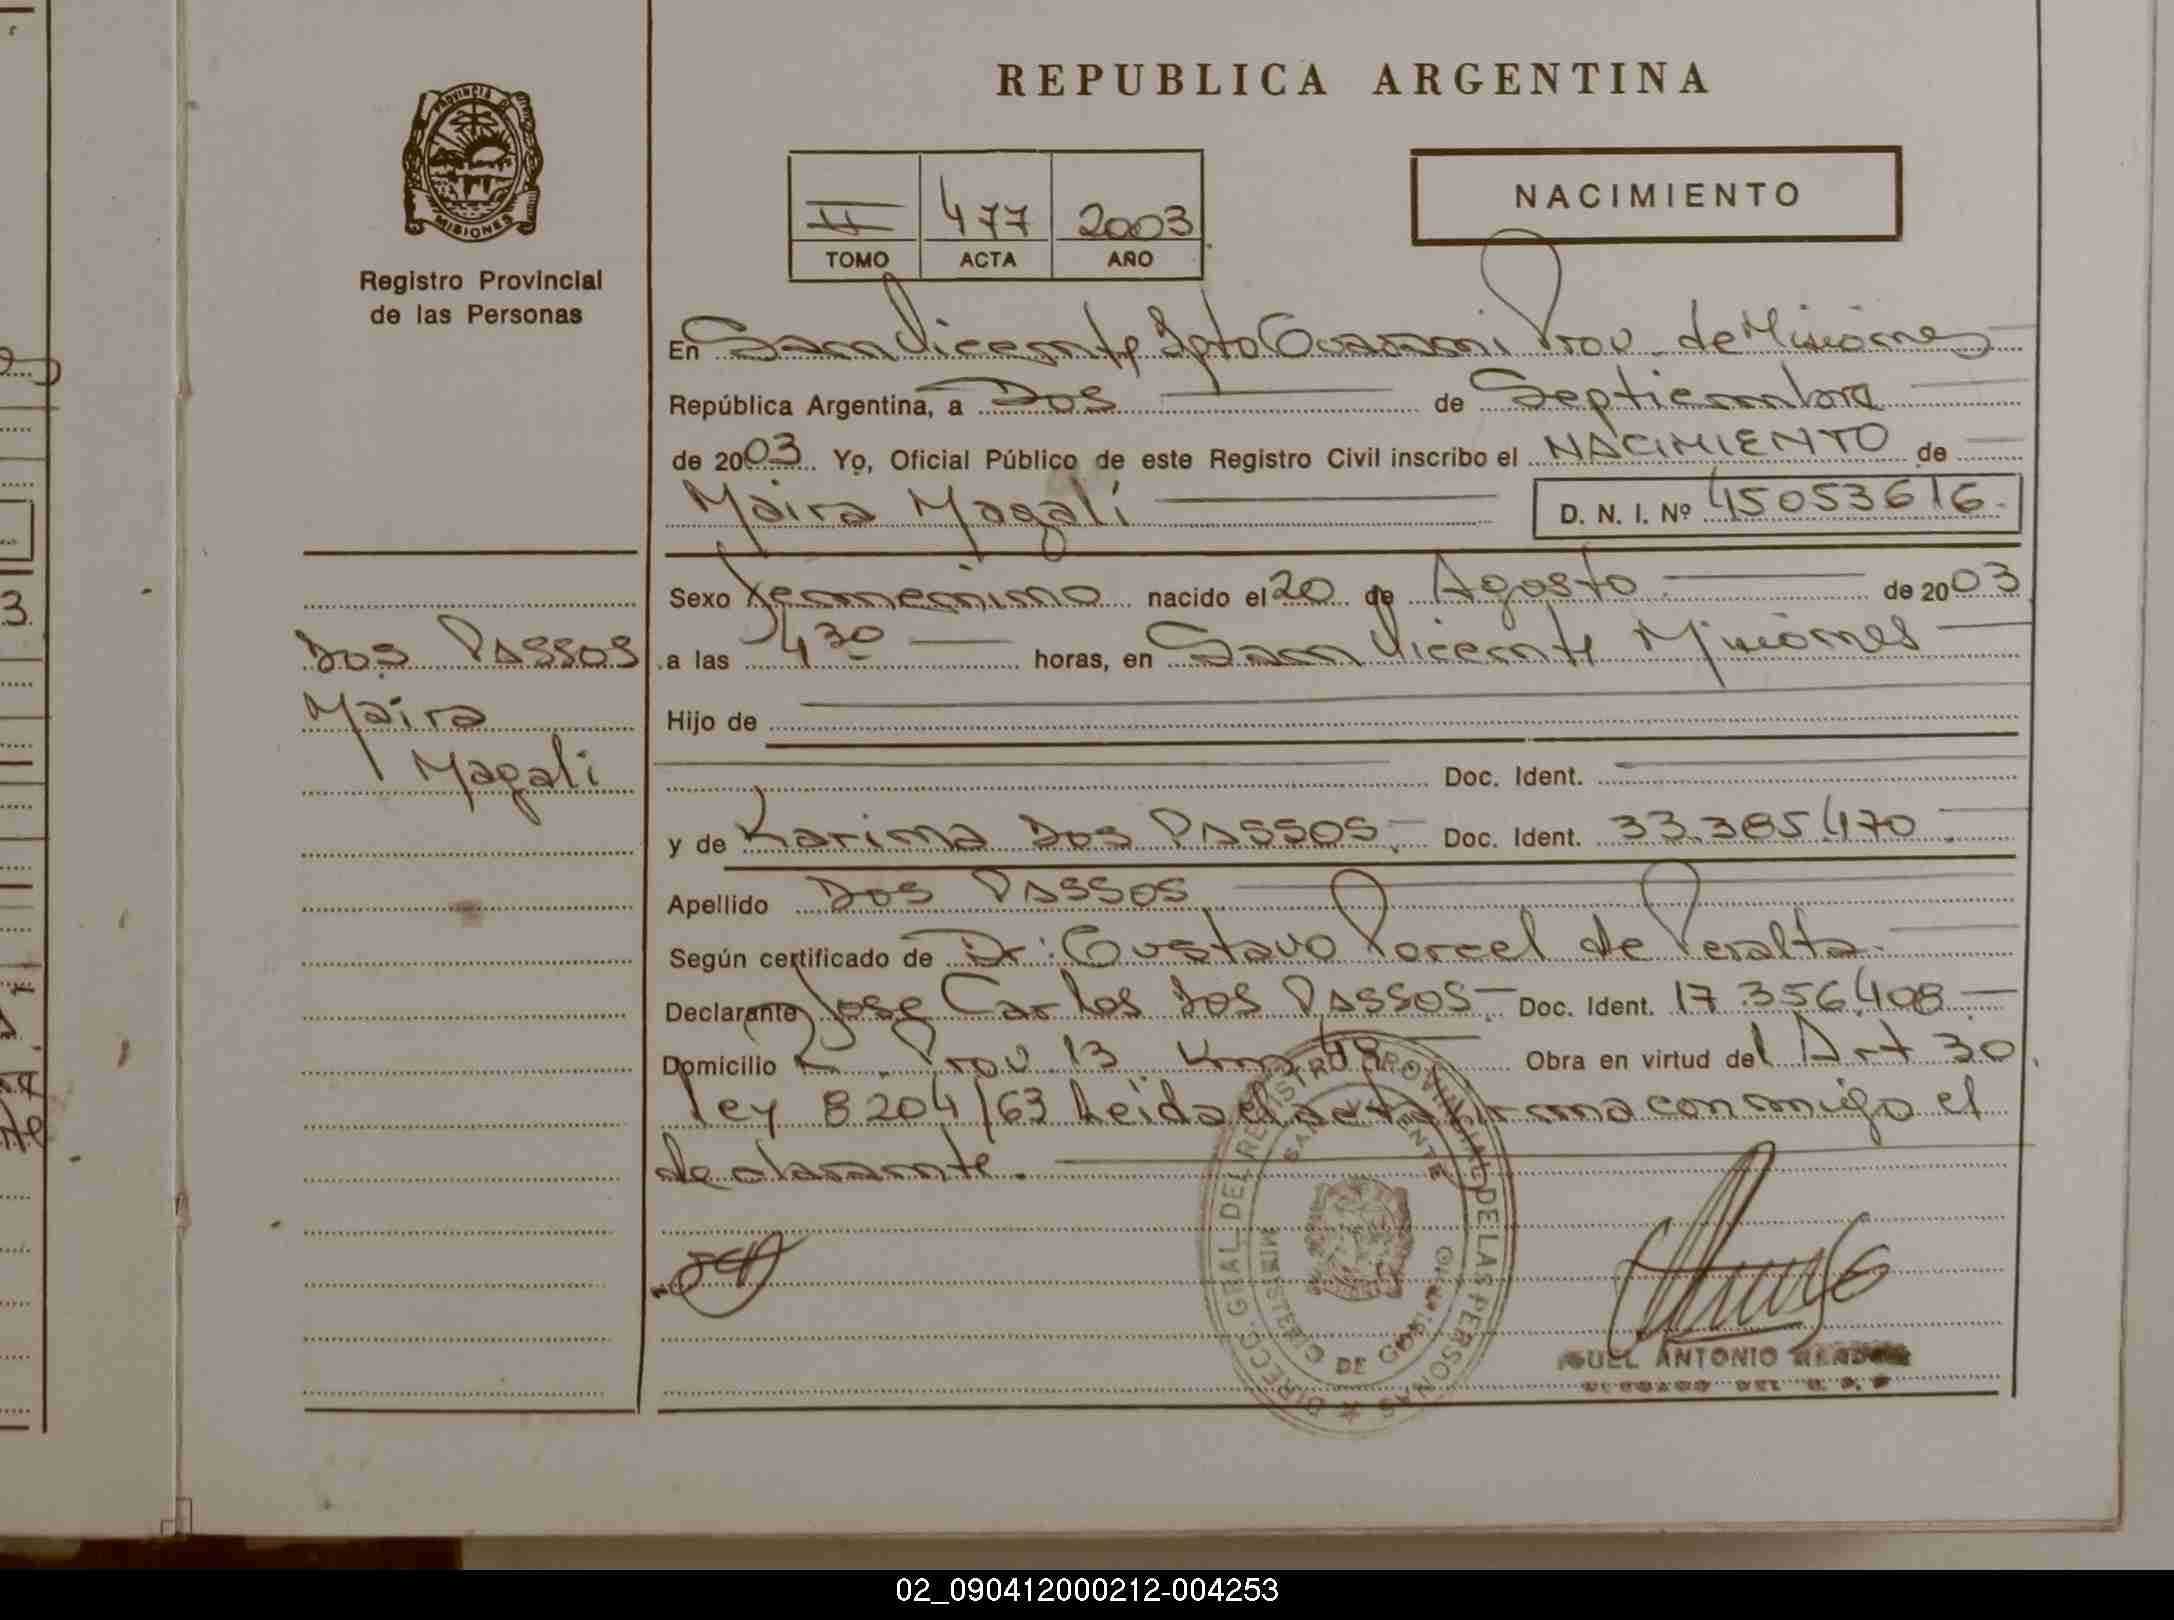 REPUBLICA ARGENTINA
PROVINCIA D
MISIONES
Registro Provincial
de las Personas
II 477 2003
TOMO ACTA AÑO
NACIMIENTO
En San Vicente Dpto Guarani Prov. de Misiones
República Argentina, a Dos de Septiembre
de 2003 Yo, Oficial Público de este Registro Civil inscribo el NACIMIENTO de
Maira Magali D. N. I. Nº 45053616.
Sexo Femenino nacido el 20 de Agosto de 2003
Dos Passos
a las 4 30 horas, en San Vicente Misiones
Maira
Hijo de
Magali
Doc. Ident.
y de Karina Dos Passos. Doc. Ident. 33.385.470.
Apellido Dos Passos
Según certificado de Dr: Gustavo Porcel de Peralta.
Declarante Jose Carlos Dos Passos. Doc. Ident. 17.356.408.
Domicilio R. Prov 13 Km 48 Obra en virtud del Art 30
ley 8204/63 Leida el acta firma conmigo el
declarante.
DIRECC. GRAL. DEL REGISTRO PROVINCIAL DE LAS PERSONAS
SAN VICENTE
MINISTERIO DE GOBIERNO
GUEL ANTONIO
02_090412000212-004253